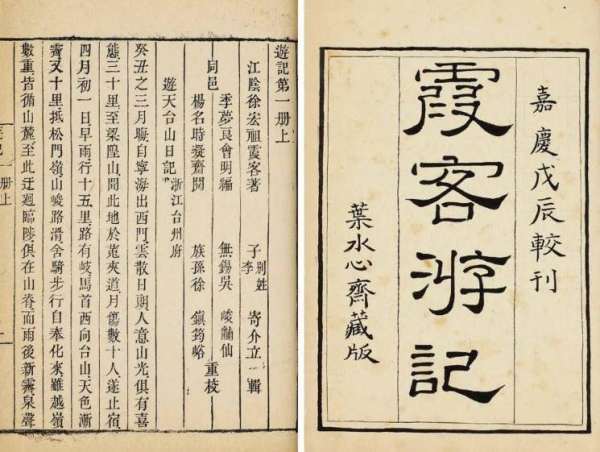 嘉慶戊辰較刊
霞客游記
葉水心齋藏版
遊記第一册上
江陰徐宏祖霞客著 子李别姓寄介立輯
同邑
季夢良會明編 無錫吳峻黼仙
楊名時凝齋閱 族孫徐鎮筠峪
重校
遊天台山日記 浙江台州府
癸丑之三月晦自寧海出西門雲散日朗人意山光俱有喜
態三十里至梁隍山聞此地於菟夾道月傷數十人遂止宿
四月初一日早雨行十五里路有岐馬首西向台山天色漸
霽又十里抵松門嶺山峻路滑舍騎步行自奉化來雖越嶺
數重皆循山麓至此迂迴臨陟俱在山脊而雨後新霽泉聲
册上